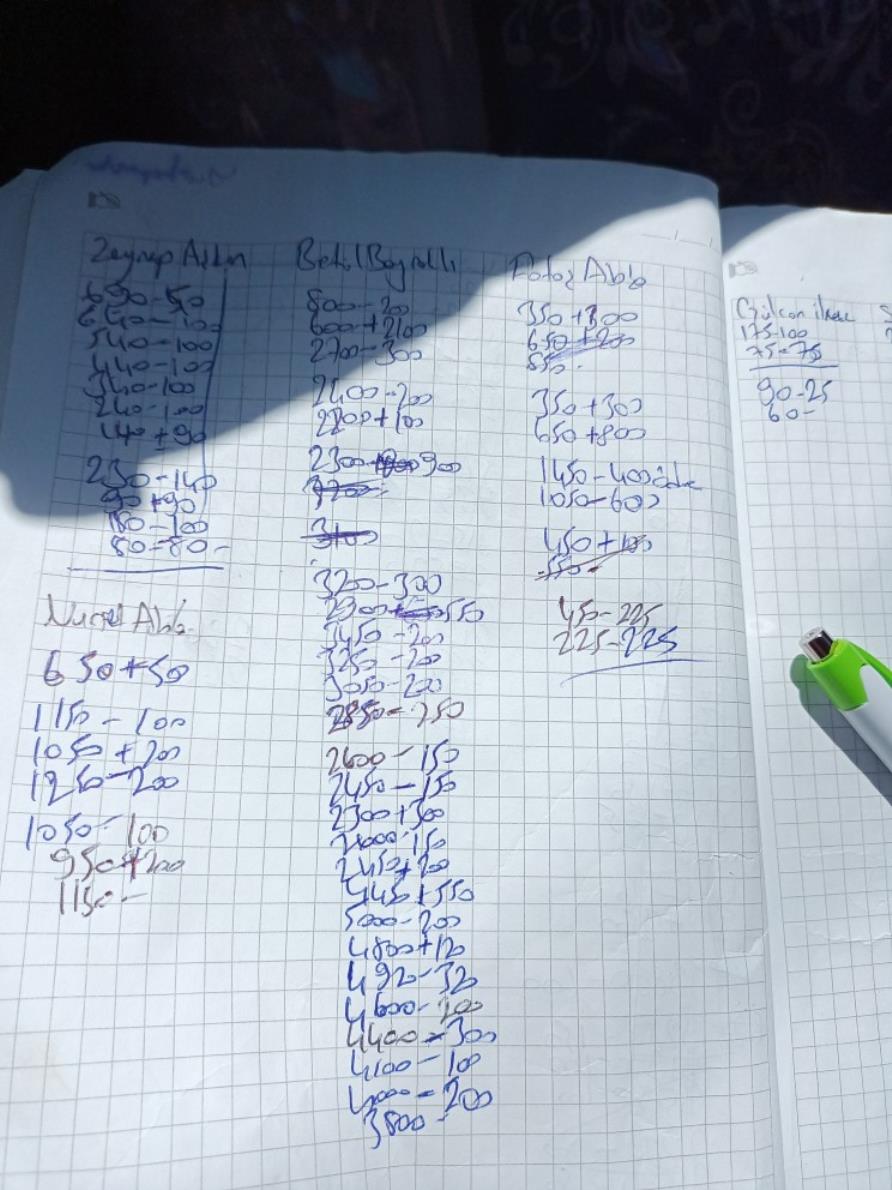 Zeynep
690-50
640-100
540-100
440-100
340-100
240-100
140+90
230-140
90+90
180-100
80=80-
Abla
650+50
1150-100
1050+200
1250-200
1050-100
950+200
1150-
Betül
800-200
600+2100
2700-300
2400-200
2200+100
2300 900
3200-
3100
3200-300
2900+ 550
3450-200
3250-200
3050-200
2850-250
2600-150
2450-150
2300+300
2600-150
2450+200
4450+550
5000-200
4800+120
4920-320
4600-200
4400-300
4100-100
4000-200
3800-
Abla
350+300
650+200
850-
350+300
650+800
1450-400
1050-600
450+100
550-
450-225
225-225
Gülcan
175-100
75-75
90-25
60-